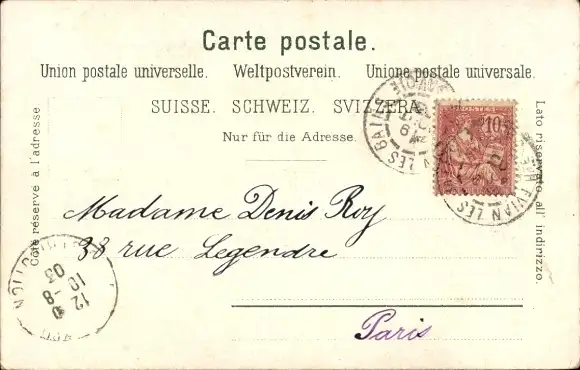 Carte postale.
Union postale universelle. Weltpostverein. Unione postale universale.
SUISSE. SCHWEIZ. SVIZZERA.
Nur für die Adresse.
Côté réservé à l'adresse
Lato riservato all' indirizzo.
10
EVIAN LES
LES BAINS
Madame Denis Roy
38 rue Legendre
Paris
DISTRIBUTION
12
10 -8
03